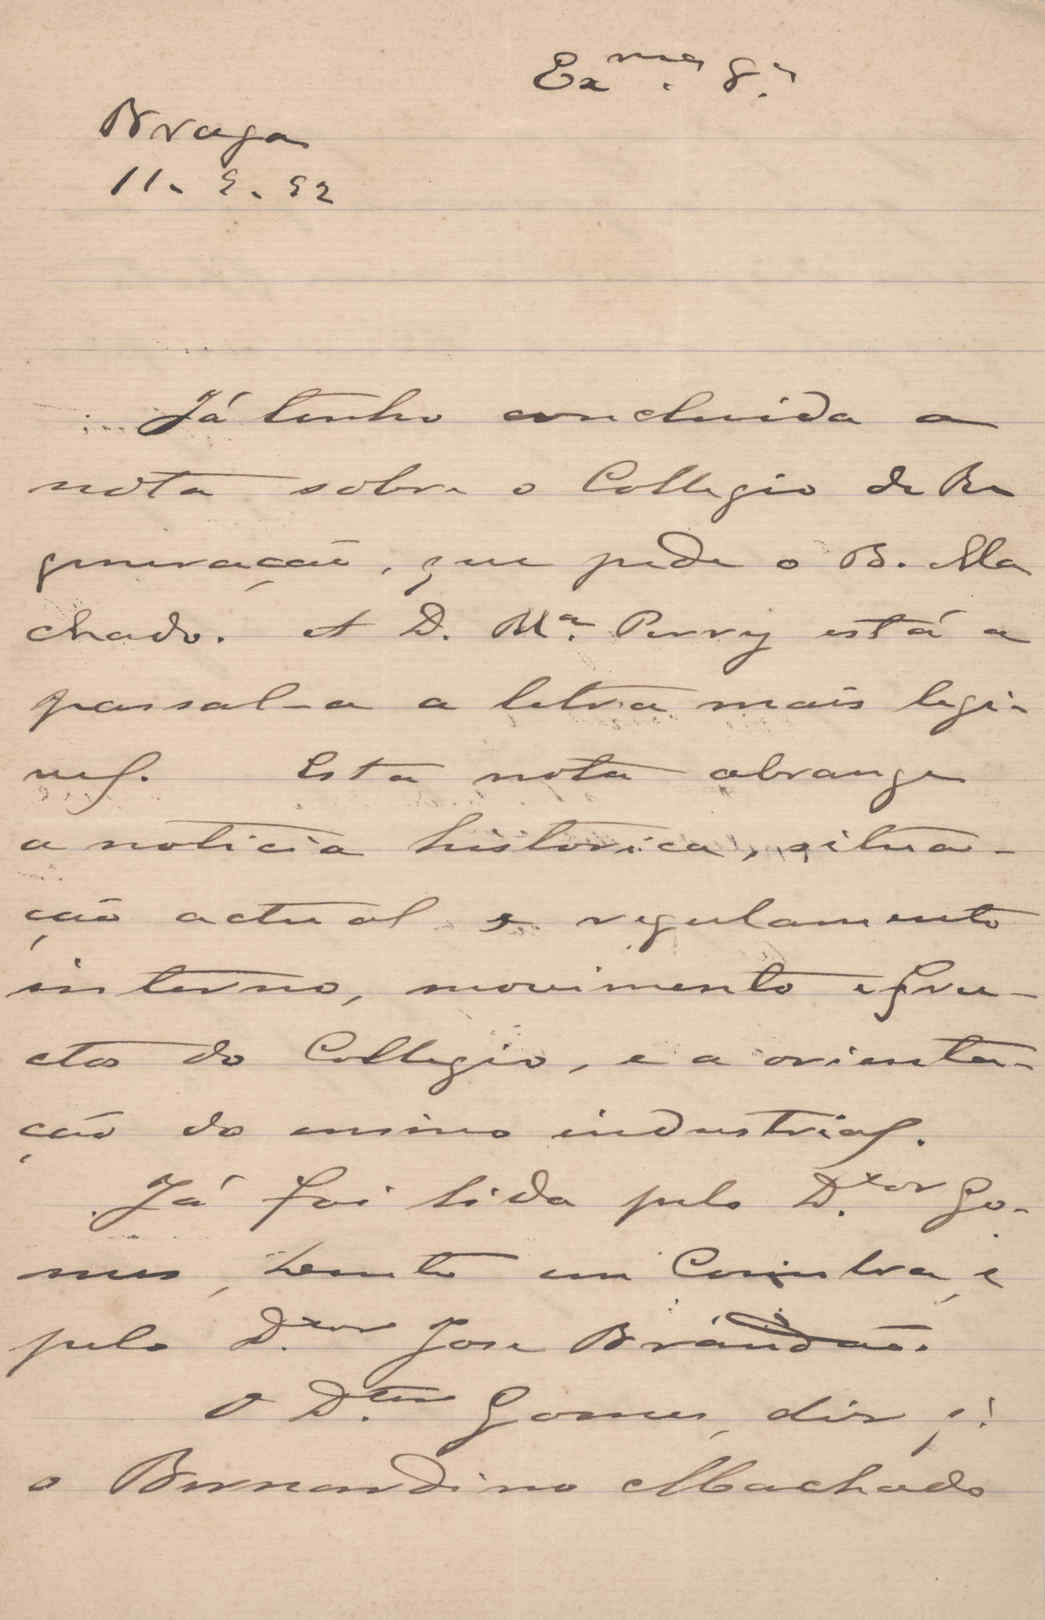 Exmo. Sr.
Braga
11. 9. 92
Já tenho concluida a
nota sobre o Collegio da Re
generação, que pede o B. Ma
chado. A D. Ma. Perry está a
passal-a a letra mais legi-
vel. Esta nota abrange
a noticia historica, situa-
ção actual e regulamento
interno, movimento e fru-
ctos do Collegio, e a orienta-
ção do ensino industrial.
Já foi lida pelo Dtor Go-
mes, Lente em Coimbra, e
pelo Dtor José Brandão.
O Dtor Gomes, diz q.
o Bernardino Machado